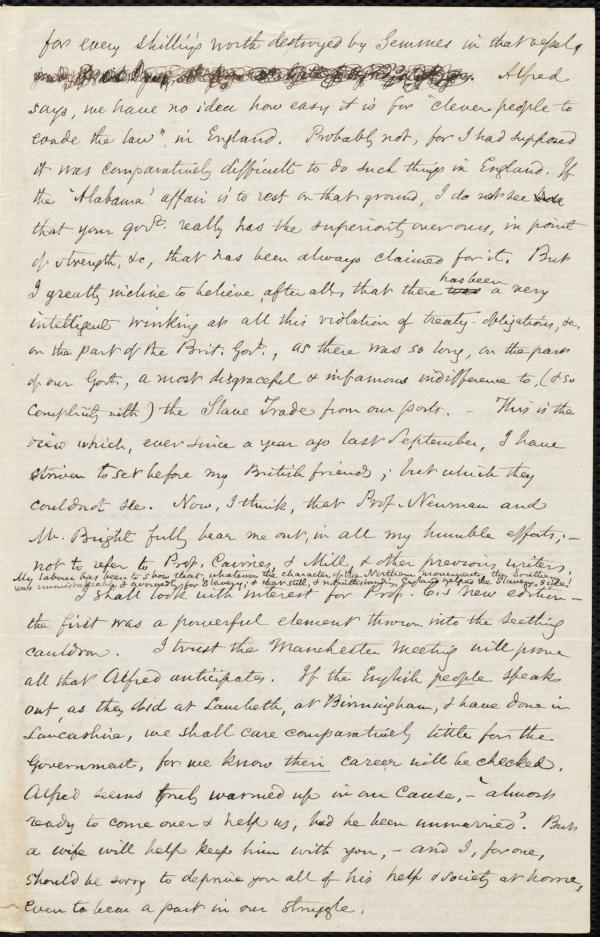 for every shilling's worth destroyed by Semmes in that vessel,
Alfred
says, we have no idea how easy it is for "clever people to
evade the law" in England. Probably not, for I had supposed
it was comparatively difficult to do such things in England. If
the 'Alabama' affair is to rest on that ground, I do not see
that your govt. really has the superiority over ours, in point
of strength, &c, that has been always claimed for it. But
I greatly incline to believe, after all, that there was has been a very
intelligent winking at all this violation of treaty-obligations, &c.
on the part of the Brit. Govt., as there was so long, on the part
of our Govt., a most disgraceful & infamous indifference to, (& so
complicity with) the Slave Trade from our ports. - This is the
view which, ever since a year ago last September, I have
striven to set before my British friends; but which they
could not see. Now, I think, that Prof. Newman and
Mr. Bright fully bear me out, in all my humble efforts; -
not to refer to Prof. Cairnes, & Mill, & other previous writers.
My labour has been to show that, whatever the character of the Northern movement, the Southern
was unmistakeably & avowedly for Slavery; & that still, & notwithstanding, England helped the Slavery side!
I shall look with interest for Prof. C.'s new edition -
the first was a powerful element thrown into the seething
cauldron. I trust the Manchester meeting will prove
all that Alfred anticipates. If the English people speak
out, as they did at Lambeth, at Birmingham, & have done in
Lancashire, we shall care comparatively little for the
Government, for we know their career will be checked.
Alfred seems truly warmed up in our cause, - "almost
ready to come over & help us, had he been unmarried". But
a wife will help keep him with you, - and I, for one,
should be sorry to deprive you all of his help & society at home,
even to bear a part in our struggle.